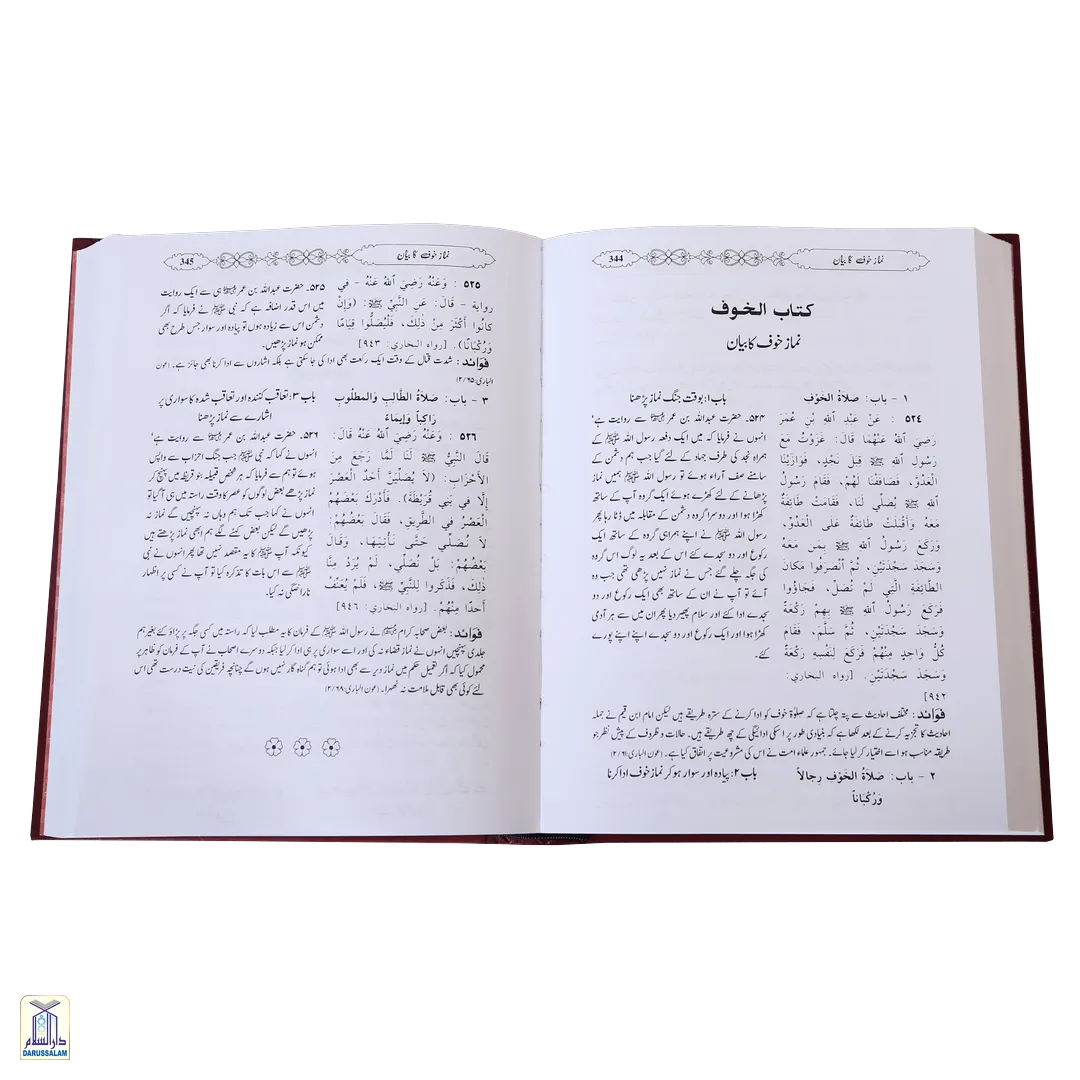 نماز خوف کا بیان
344
كتاب الخوف
نماز خوف کا بیان
١ - باب: صَلاَةُ الخَوْفِ
باب ۱: بوقت جنگ نماز پڑھنا
٥٢٤ : عَنْ عَبْدِ ٱللهِ بْنِ عُمَرَ
رَضِيَ ٱللهُ عَنْهُمَا قَالَ: غَزَوْتُ مَعَ
رَسُولِ ٱللهِ ﷺ قِبَلَ نَجْدٍ، فَوَازَيْنَا
الْعَدُوَّ، فَصَافَفْنَا لَهُمْ، فَقَامَ رَسُولُ
ٱللهِ ﷺ يُصَلِّي لَنَا، فَقَامَتْ طَائِفَةٌ
مَعَهُ وَأَقْبَلَتْ طَائِفَةٌ عَلَى الْعَدُوِّ،
وَرَكَعَ رَسُولُ ٱللهِ ﷺ بِمَن مَعَهُ
وَسَجَدَ سَجْدَتَيْنِ، ثُمَّ ٱنْصَرَفُوا مَكانَ
الطَّائِفَةِ الَّتِي لَمْ تُصَلِّ، فَجَاؤُوا
فَرَكَعَ رَسُولُ ٱللهِ ﷺ بِهِمْ رَكْعَةً
وَسَجَدَ سَجْدَتَيْنِ، ثُمَّ سَلَّمَ، فَقَامَ
كُلُّ وَاحِدٍ مِنْهُمْ فَرَكَعَ لِنَفْسِهِ رَكْعَةً
وَسَجَدَ سَجْدَتَيْنِ. [رواه البخاري:
٩٤٢]
۵۲۴۔ حضرت عبداللہ بن عمر ﷜ سے روایت ہے‘
انہوں نے فرمایا کہ میں ایک دفعہ رسول اللہ ﷺ کے
ہمراہ نجد کی طرف جہاد کے لئے گیا جب ہم دشمن کے
سامنے صف آراء ہوئے تو رسول اللہ ﷺ ہمیں نماز
پڑھانے کے لئے کھڑے ہوئے ایک گروہ آپ کے ساتھ
کھڑا ہوا اور دوسرا گروہ دشمن کے مقابلہ میں ڈٹا رہا پھر
رسول اللہ ﷺ نے اپنے ہمراہی گروہ کے ساتھ ایک
رکوع اور دو سجدے کئے اس کے بعد یہ لوگ اس گروہ
کی جگہ چلے گئے جس نے نماز نہیں پڑھی تھی جب وہ
آئے تو آپ نے ان کے ساتھ بھی ایک رکوع اور دو
سجدے ادا کئے اور سلام پھیر دیا پھر ان میں سے ہر آدمی
کھڑا ہوا اور ایک رکوع اور دو سجدے اپنے اپنے پورے
کئے۔
فَوَائد : مختلف احادیث سے پتہ چلتا ہے کہ صلوٰۃ خوف کو ادا کرنے کے سترہ طریقے ہیں لیکن امام ابن قیم نے جملہ
احادیث کا تجزیہ کرنے کے بعد لکھا ہے کہ بنیادی طور پر اسکی ادائیگی کے چھ طریقے ہیں۔ حالات و ظروف کے پیش نظر جو
طریقہ مناسب ہو اسے اختیار کر لیا جائے۔ جمہور علماء امت نے اس کی مشروعیت پر اتفاق کیا ہے۔ (عون الباری:۲/۶۱)
٢ - باب: صَلاَةُ الخَوْفِ رِجالاً
وَرُكْبَاناً
باب ۲: پیادہ اور سوار ہو کر نماز خوف ادا کرنا
نماز خوف کا بیان
345
٥٢٥ : وَعَنْهُ رَضِيَ ٱللهُ عَنْهُ - في
رواية - قَالَ: عَنِ النَّبِيِّ ﷺ: (وَإِنْ
كانُوا أَكْثَرَ مِنْ ذٰلِكَ، فَلْيُصَلُّوا قِيَامًا
وَرُكْبَانًا). [رواه البخاري: ٩٤٣]
۵۲۵۔ حضرت عبداللہ بن عمر ﷜ ہی سے ایک روایت
میں اس قدر اضافہ ہے کہ نبی ﷺ نے فرمایا کہ اگر
دشمن اس سے زیادہ ہوں تو پیادہ اور سوار جس طرح بھی
ممکن ہو نماز پڑھیں۔
فَوَائد : شدت قتال کے وقت ایک رکعت بھی ادا کی جا سکتی ہے بلکہ اشاروں سے ادا کرنا بھی جائز ہے۔ (عون
الباری:۲/۶۵)
٣ - باب: صَلاَةُ الطَّالِبِ وَالمَطلُوبِ
رَاكِباً وَإِيمَاءً
باب ۳: تعاقب کنندہ اور تعاقب شدہ کا سواری پر
اشارے سے نماز پڑھنا
٥٢٦ : وَعَنْهُ رَضِيَ ٱللهُ عَنْهُ قَالَ:
قَالَ النَّبِيُّ ﷺ لَنَا لَمَّا رَجَعَ مِنَ
الأَحْزَابِ: (لاَ يُصَلِّيَنَّ أَحَدٌ الْعَصْرَ
إِلَّا في بَنِي قُرَيْظَةَ). فَأَدْرَكَ بَعْضَهُمُ
الْعَصْرُ في الطَّرِيقِ، فَقَالَ بَعْضُهُمْ:
لاَ نُصَلِّي حَتَّى نَأْتِيَهَا، وَقَالَ
بَعْضُهُمْ: بَلْ نُصَلِّي، لَمْ يُرَدْ مِنَّا
ذٰلِكَ، فَذَكَرُوا لِلنَّبِيِّ ﷺ، فَلَمْ يُعَنِّفْ
أَحَدًا مِنْهُمْ. [رواه البخاري: ٩٤٦]
۵۲۶۔ حضرت عبداللہ بن عمر ﷜ سے روایت ہے‘
انہوں نے کہا کہ نبی ﷺ جب جنگ احزاب سے واپس
ہوئے تو ہم سے فرمایا کہ ہر شخص قبیلہ بنو قریظہ میں پہنچ کر
نماز پڑھے بعض لوگوں کو عصر کا وقت راستہ میں ہی آگیا تو
انہوں نے کہا جب تک ہم وہاں نہ پہنچیں گے نماز نہ
پڑھیں گے لیکن بعض کہنے لگے ہم ابھی نماز پڑھتے ہیں
کیونکہ آپ ﷺ کا یہ مقصد نہیں تھا پھر انہوں نے نبی
ﷺ سے اس بات کا تذکرہ کیا تو آپ نے کسی پر اظہار
ناراضگی نہ کیا۔
فَوَائد : بعض صحابہ کرام نے رسول اللہ ﷺ کے فرمان کا یہ مطلب لیا کہ راستہ میں کسی جگہ پر پڑاؤ کئے بغیر ہم
جلدی پہنچیں انہوں نے نماز قضاء نہ کی اور اسے سواری پر ہی ادا کر لیا جبکہ دوسرے اصحاب نے آپ کے فرمان کو ظاہر پر
محمول کیا کہ اگر تعمیل حکم میں نماز دیر سے بھی ادا ہوئی تو ہم گناہ گار نہیں ہوں گے چنانچہ فریقین کی نیت درست تھی اس
لئے کوئی بھی قابل ملامت نہ ٹھہرا۔ (عون الباری:۲/۶۸)
دار السلام
DARUSSALAM